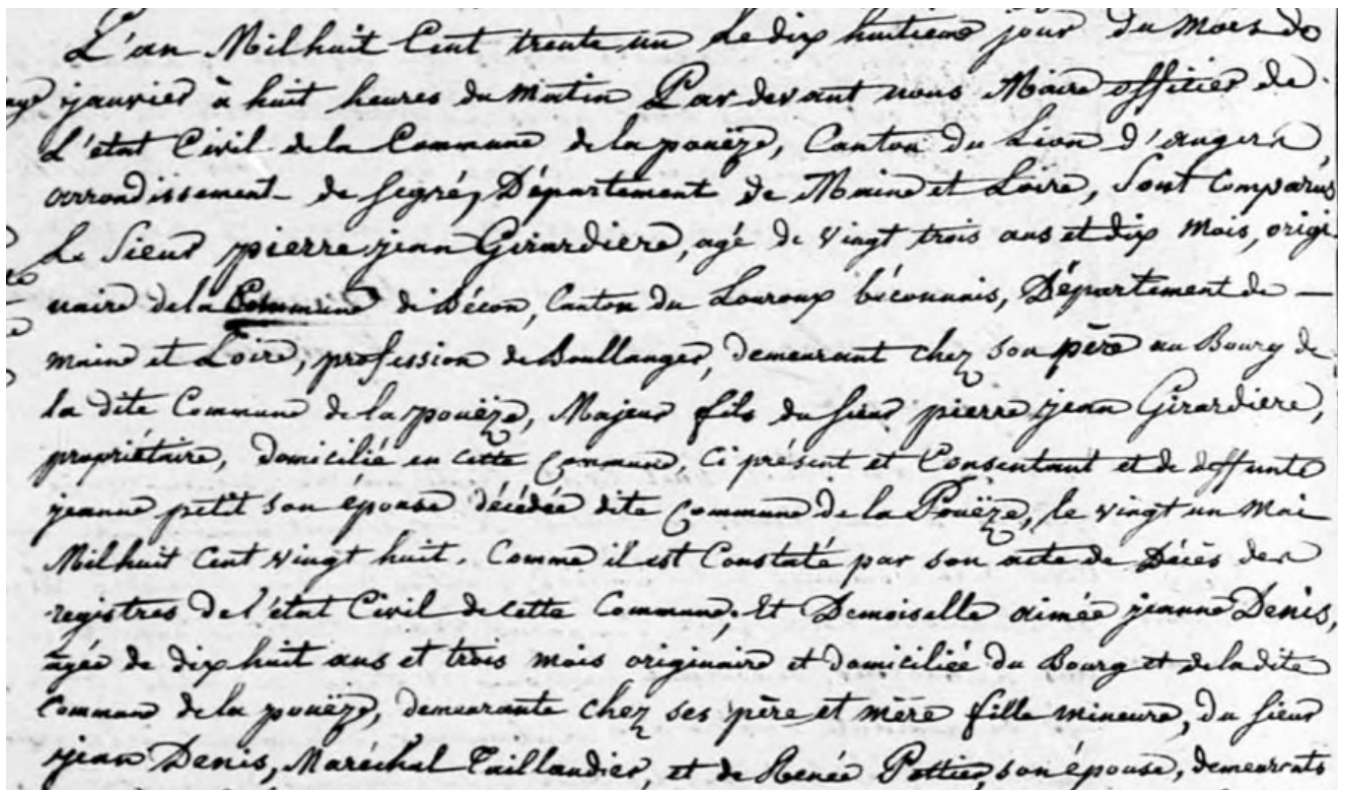 L'an Mil huit Cent trente un le dix huitieme jour du mois de
janvier à huit heures du matin Par devant nous Maire officier de
L'état Civil de la Commune de la pouëze, Canton du Lion d'angers,
arrondissement de Segré, Département de Maine et Loire, Sont Comparus
Le Sieur pierre jean Girardiere, agé de vingt trois ans et dix mois, origi
naire de la Commune de Bécon, Canton du Louroux béconnais, Département de —
maine et Loire, profession de Boullanger, demeurant chez son père au Bourg de
la dite Commune de la pouëze, Majeur fils du sieur pierre jean Girardiere,
propriétaire, domicilié en cette Commune, Ci présent et Consentant et de deffunte
jeanne petit son épouse décédée dite Commune de la Pouëze, le vingt un Mai
Mil huit Cent vingt huit. Comme il est Constaté par son acte de Décès des
registres de l'état Civil de cette Commune, Et Demoiselle aimée jeanne Denis,
agée de dix huit ans et trois mois originaire et domiciliée du Bourg et de la dite
Commune de la pouëze, demeurante chez ses père et mère fille mineure, du Sieur
jean Denis, Maréchal Taillandier, et de Renée Pottier, son épouse, demeurants